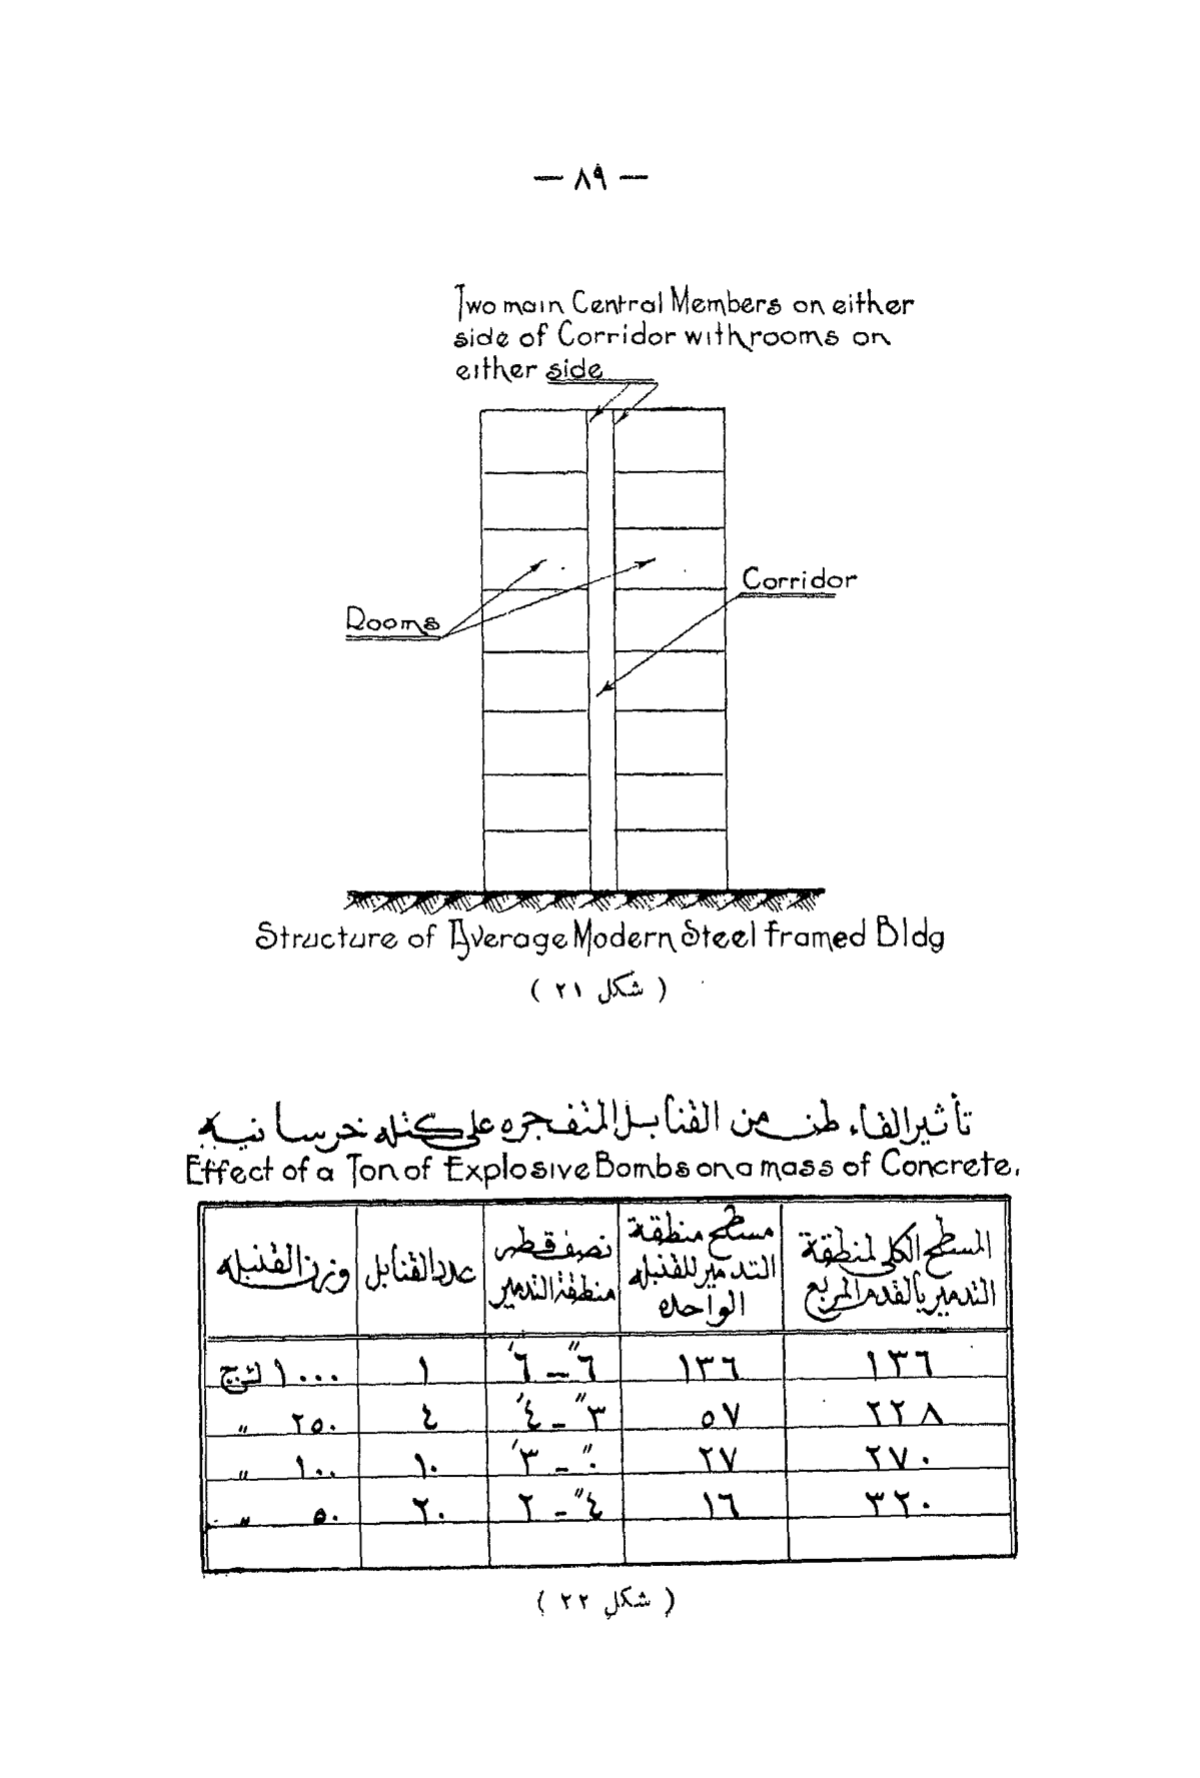 — ٨٩ —
Two main Central Members on either
side of Corridor with rooms on
either side
Corridor
Rooms
Structure of Average Modern Steel framed Bldg
( شكل ٢١ )
تأثير القاء طن من القنابل المتفجره على كتله خرسانيه
Effect of a Ton of Explosive Bombs on a mass of Concrete.
وزن القنبله | عدد القنابل | نصف قطر منطقة التدمير | مسطح منطقة التدمير للقنبله الواحده | المسطح الكلى لمنطقة التدمير بالقدم المربع
١٠٠٠ | ١ | ٦´ــ ٦˝ | ١٣٦ | ١٣٦
٢٥٠ ” | ٤ | ٤´ــ ٣˝ | ٥٧ | ٢٢٨
١٠٠ ” | ١٠ | ٣´ــ ٠˝ | ٢٧ | ٢٧٠
٥٠ ” | ٢٠ | ٢ ــ ٤˝ | ١٦ | ٣٢٠
( شكل ٢٢ )